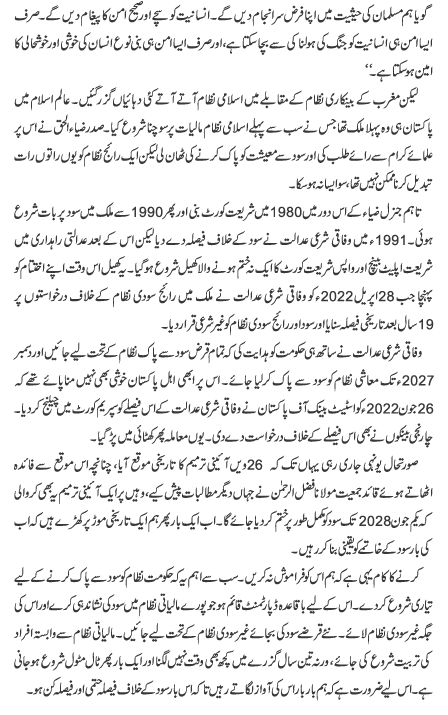 گویا ہم مسلمان کی حیثیت میں اپنا فرض سرانجام دیں گے۔ انسانیت کو سچے اور صحیح امن کا پیغام دیں گے۔ صرف
ایسا امن ہی انسانیت کو جنگ کی ہولناکی سے بچا سکتا ہے، اور صرف ایسا امن ہی بنی نوع انسان کی خوشی اور خوشحالی کا
امین ہو سکتا ہے۔‘‘
لیکن مغرب کے بینکاری نظام کے مقابلے میں اسلامی نظام آتے آتے کئی دہائیاں گزر گئیں۔ عالم اسلام میں
پاکستان ہی وہ پہلا ملک تھا جس نے سب سے پہلے اسلامی نظام مالیات پر سوچنا شروع کیا۔ صدر ضیاء الحق نے اس پر
علمائے کرام سے رائے طلب کی اور سود سے معیشت کو پاک کرنے کی ٹھان لی لیکن ایک رائج نظام کو یوں راتوں رات
تبدیل کرنا ممکن نہیں تھا، سو ایسا نہ ہو سکا۔
تاہم جنرل ضیاء کے اس دور میں 1980 میں شریعت کورٹ بنی اور پھر 1990 سے ملک میں سود پر بات شروع
ہوئی۔ 1991ء میں وفاقی شرعی عدالت نے سود کے خلاف فیصلہ دے دیا لیکن اس کے بعد عدالتی راہداری میں
شریعت اپلیٹ بینچ اور واپس شریعت کورٹ کا ایک نہ ختم ہونے والا کھیل شروع ہو گیا۔ یہ کھیل اس وقت اپنے اختتام کو
پہنچا جب 28 اپریل 2022ء کو وفاقی شرعی عدالت نے ملک میں رائج سودی نظام کے خلاف درخواستوں پر
19 سال بعد تاریخی فیصلہ سنایا اور سود اور رائج سودی نظام کو غیر شرعی قرار دیا۔
وفاقی شرعی عدالت نے ساتھ ہی حکومت کو ہدایت کی کہ تمام قرض سود سے پاک نظام کے تحت لیے جائیں اور دسمبر
2027ء تک معاشی نظام کو سود سے پاک کر لیا جائے۔ اس پر ابھی اہل پاکستان خوشی بھی نہیں منا پائے تھے کہ
26 جون 2022ء کو اسٹیٹ بینک آف پاکستان نے وفاقی شرعی عدالت کے اس فیصلے کو سپریم کورٹ میں چیلنج کر دیا۔
چار نجی بینکوں نے بھی اس فیصلے کے خلاف درخواست دے دی۔ یوں معاملہ پھر کھٹائی میں پڑ گیا۔
صورتحال یونہی جاری رہی یہاں تک کہ 26 ویں آئینی ترمیم کا تاریخی موقع آیا، چنانچہ اس موقع سے فائدہ
اٹھاتے ہوئے قائد جمعیت مولانا فضل الرحمٰن نے جہاں دیگر مطالبات پیش کیے، وہیں پر ایک آئینی ترمیم یہ بھی کروالی
کہ یکم جون 2028 تک سود کو مکمل طور پر ختم کر دیا جائے گا۔ اب ایک بار پھر ہم ایک تاریخی موڑ پر کھڑے ہیں کہ اب
کی بار سود کے خاتمے کو یقینی بنا کر رہیں۔
کرنے کا کام یہی ہے کہ ہم اس کو فراموش نہ کریں۔ سب سے اہم یہ کہ حکومت نظام کو سود سے پاک کرنے کے لیے
تیاری شروع کر دے۔ اس کے لیے باقاعدہ ڈپارٹمنٹ قائم ہو جو پورے مالیاتی نظام میں سود کی نشاندہی کرے اور اس کی
جگہ غیر سودی نظام لائے۔ نئے قرضے سود کی بجائے غیر سودی نظام کے تحت لیے جائیں۔ مالیاتی نظام سے وابستہ افراد
کی تربیت شروع کی جائے، ورنہ تین سال گزرنے میں کچھ بھی وقت نہیں لگنا اور ایک بار پھر ٹال مٹول شروع ہو جانی
ہے۔ اس لیے ضرورت ہے کہ ہم بار بار اس کی آواز لگاتے رہیں تا کہ اس بار سود کے خلاف فیصلہ حتمی اور فیصلہ کن ہو۔